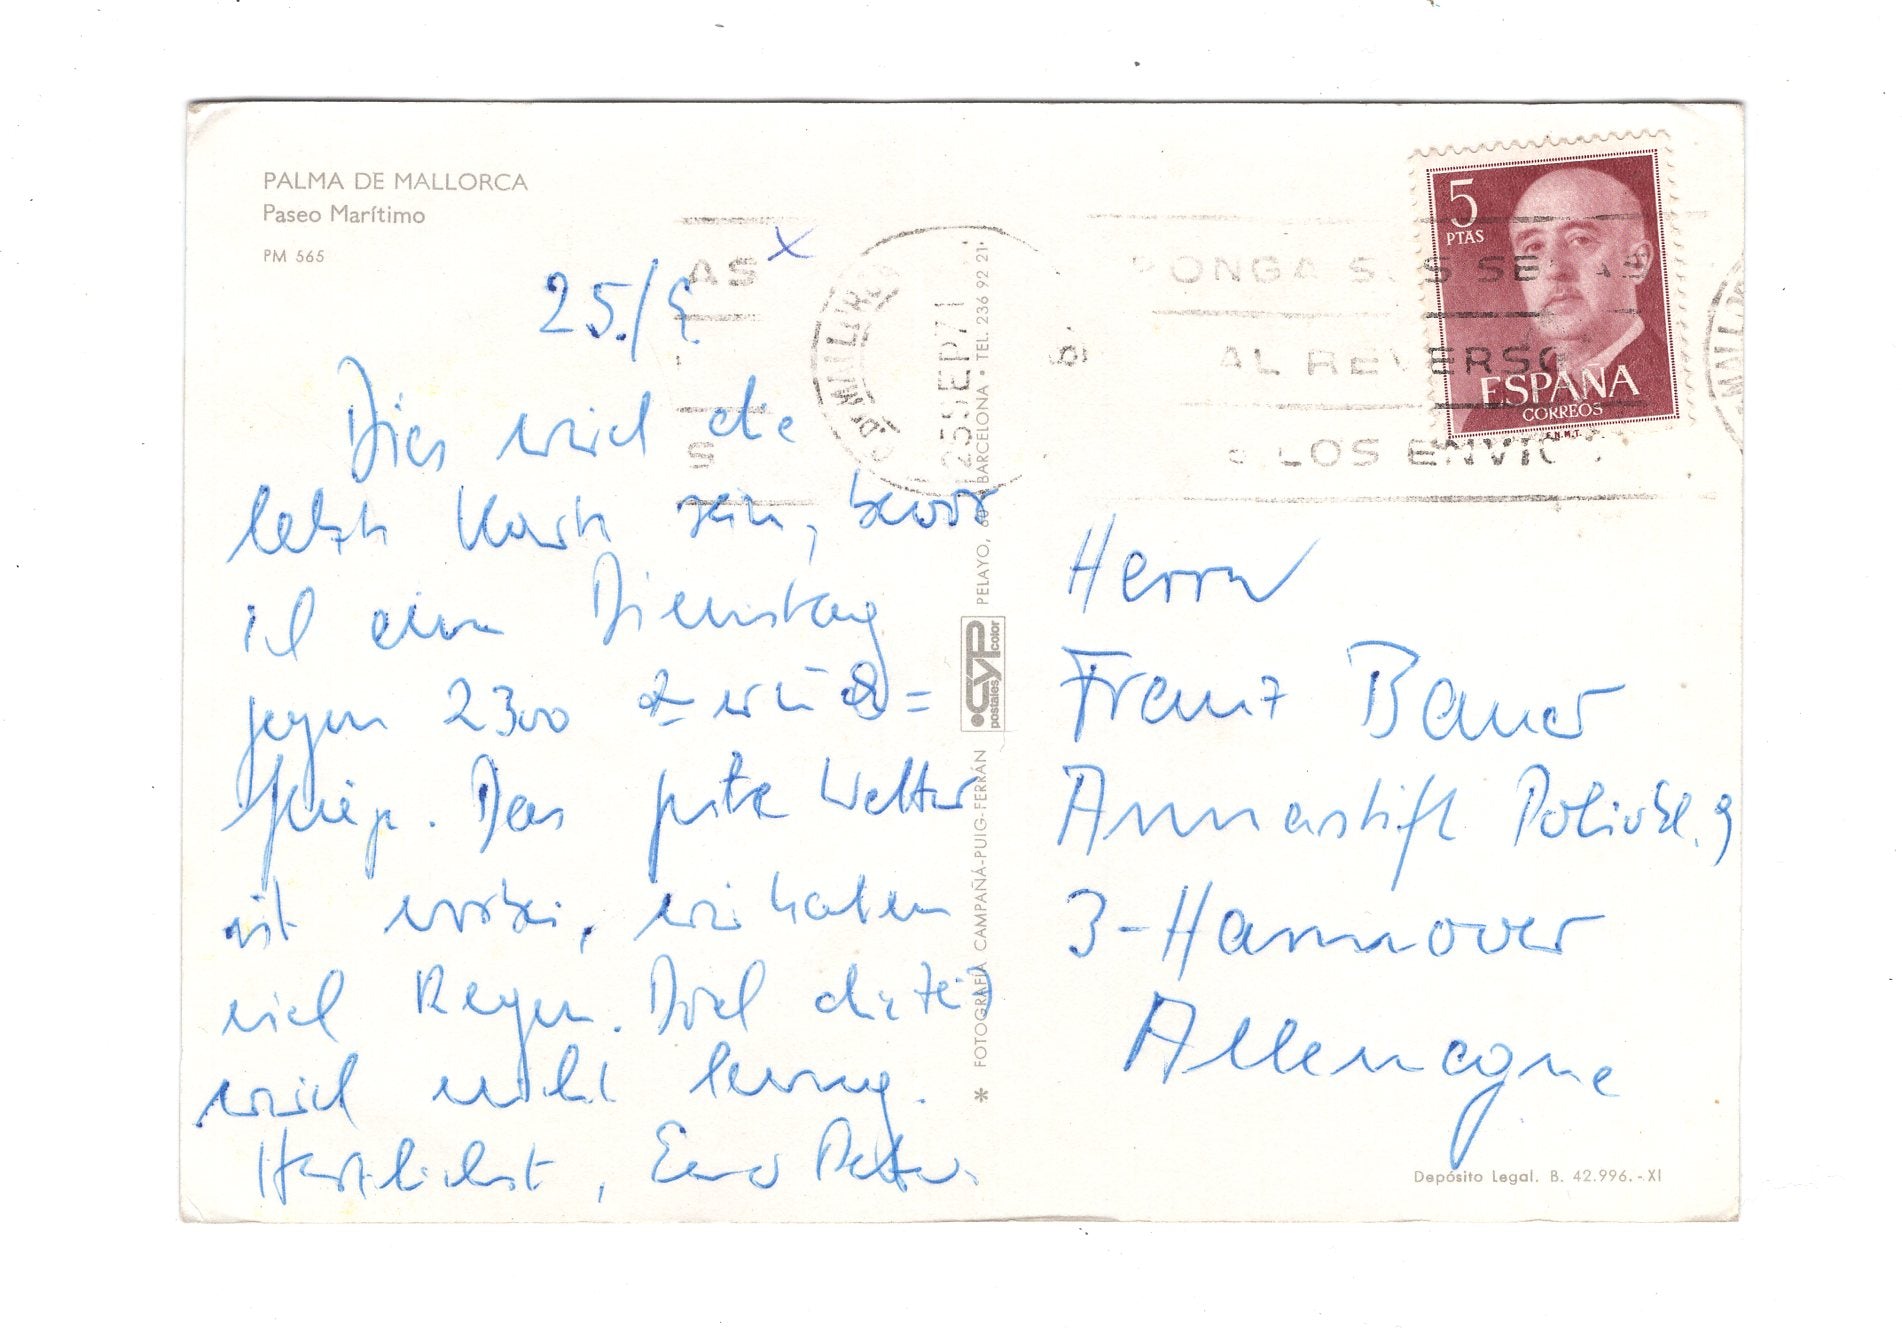 PALMA DE MALLORCA
Paseo Marítimo
PM 565
25./9.
Dies wird die
letzte Karte sein, bevor
ich am Dienstag
gegen 2300
Das gute Wetter
ist vorbei, wir haben
viel Regen. Doch die Zeit
wird nicht lang.
Herzlichst, Euer Peter.
* FOTOGRAFÍA CAMPAÑÁ-PUIG-FERRÁN
CYP
postales color
PELAYO, BARCELONA • TEL. 236 92 21
AS
S
MALLORCA
25 SEP 71
PONGA SUS SEÑAS
AL REVERSO
LOS ENVIOS
MALLORCA
5
PTAS
ESPAÑA
CORREOS
F.N.M.T.
Herrn
Franz Bauer
Annastift
3-Hannover
Allemagne
Depósito Legal. B. 42.996.-XI